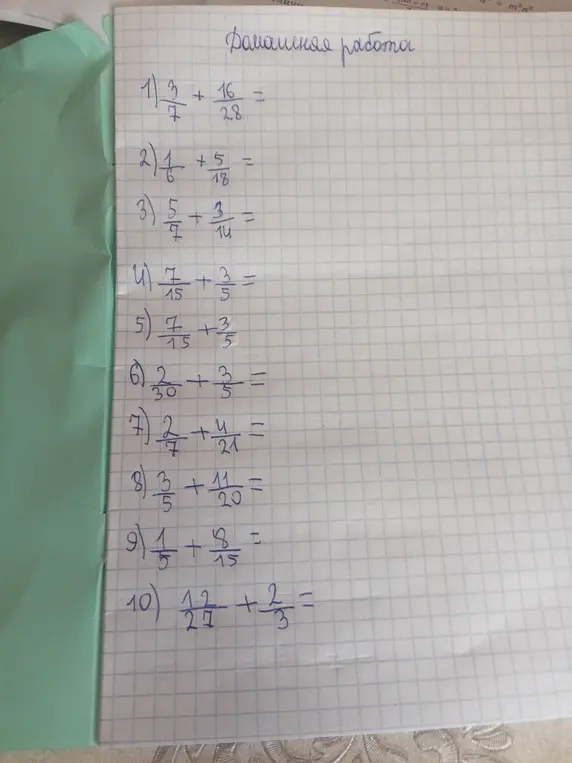 Домашняя работа
1) 3/7 + 16/28 =
2) 1/6 + 5/18 =
3) 5/7 + 3/14 =
4) 7/15 + 3/5 =
5) 7/15 + 3/5
6) 2/30 + 3/5 =
7) 2/7 + 4/21 =
8) 3/5 + 11/20 =
9) 1/5 + 8/15 =
10) 12/27 + 2/3 =